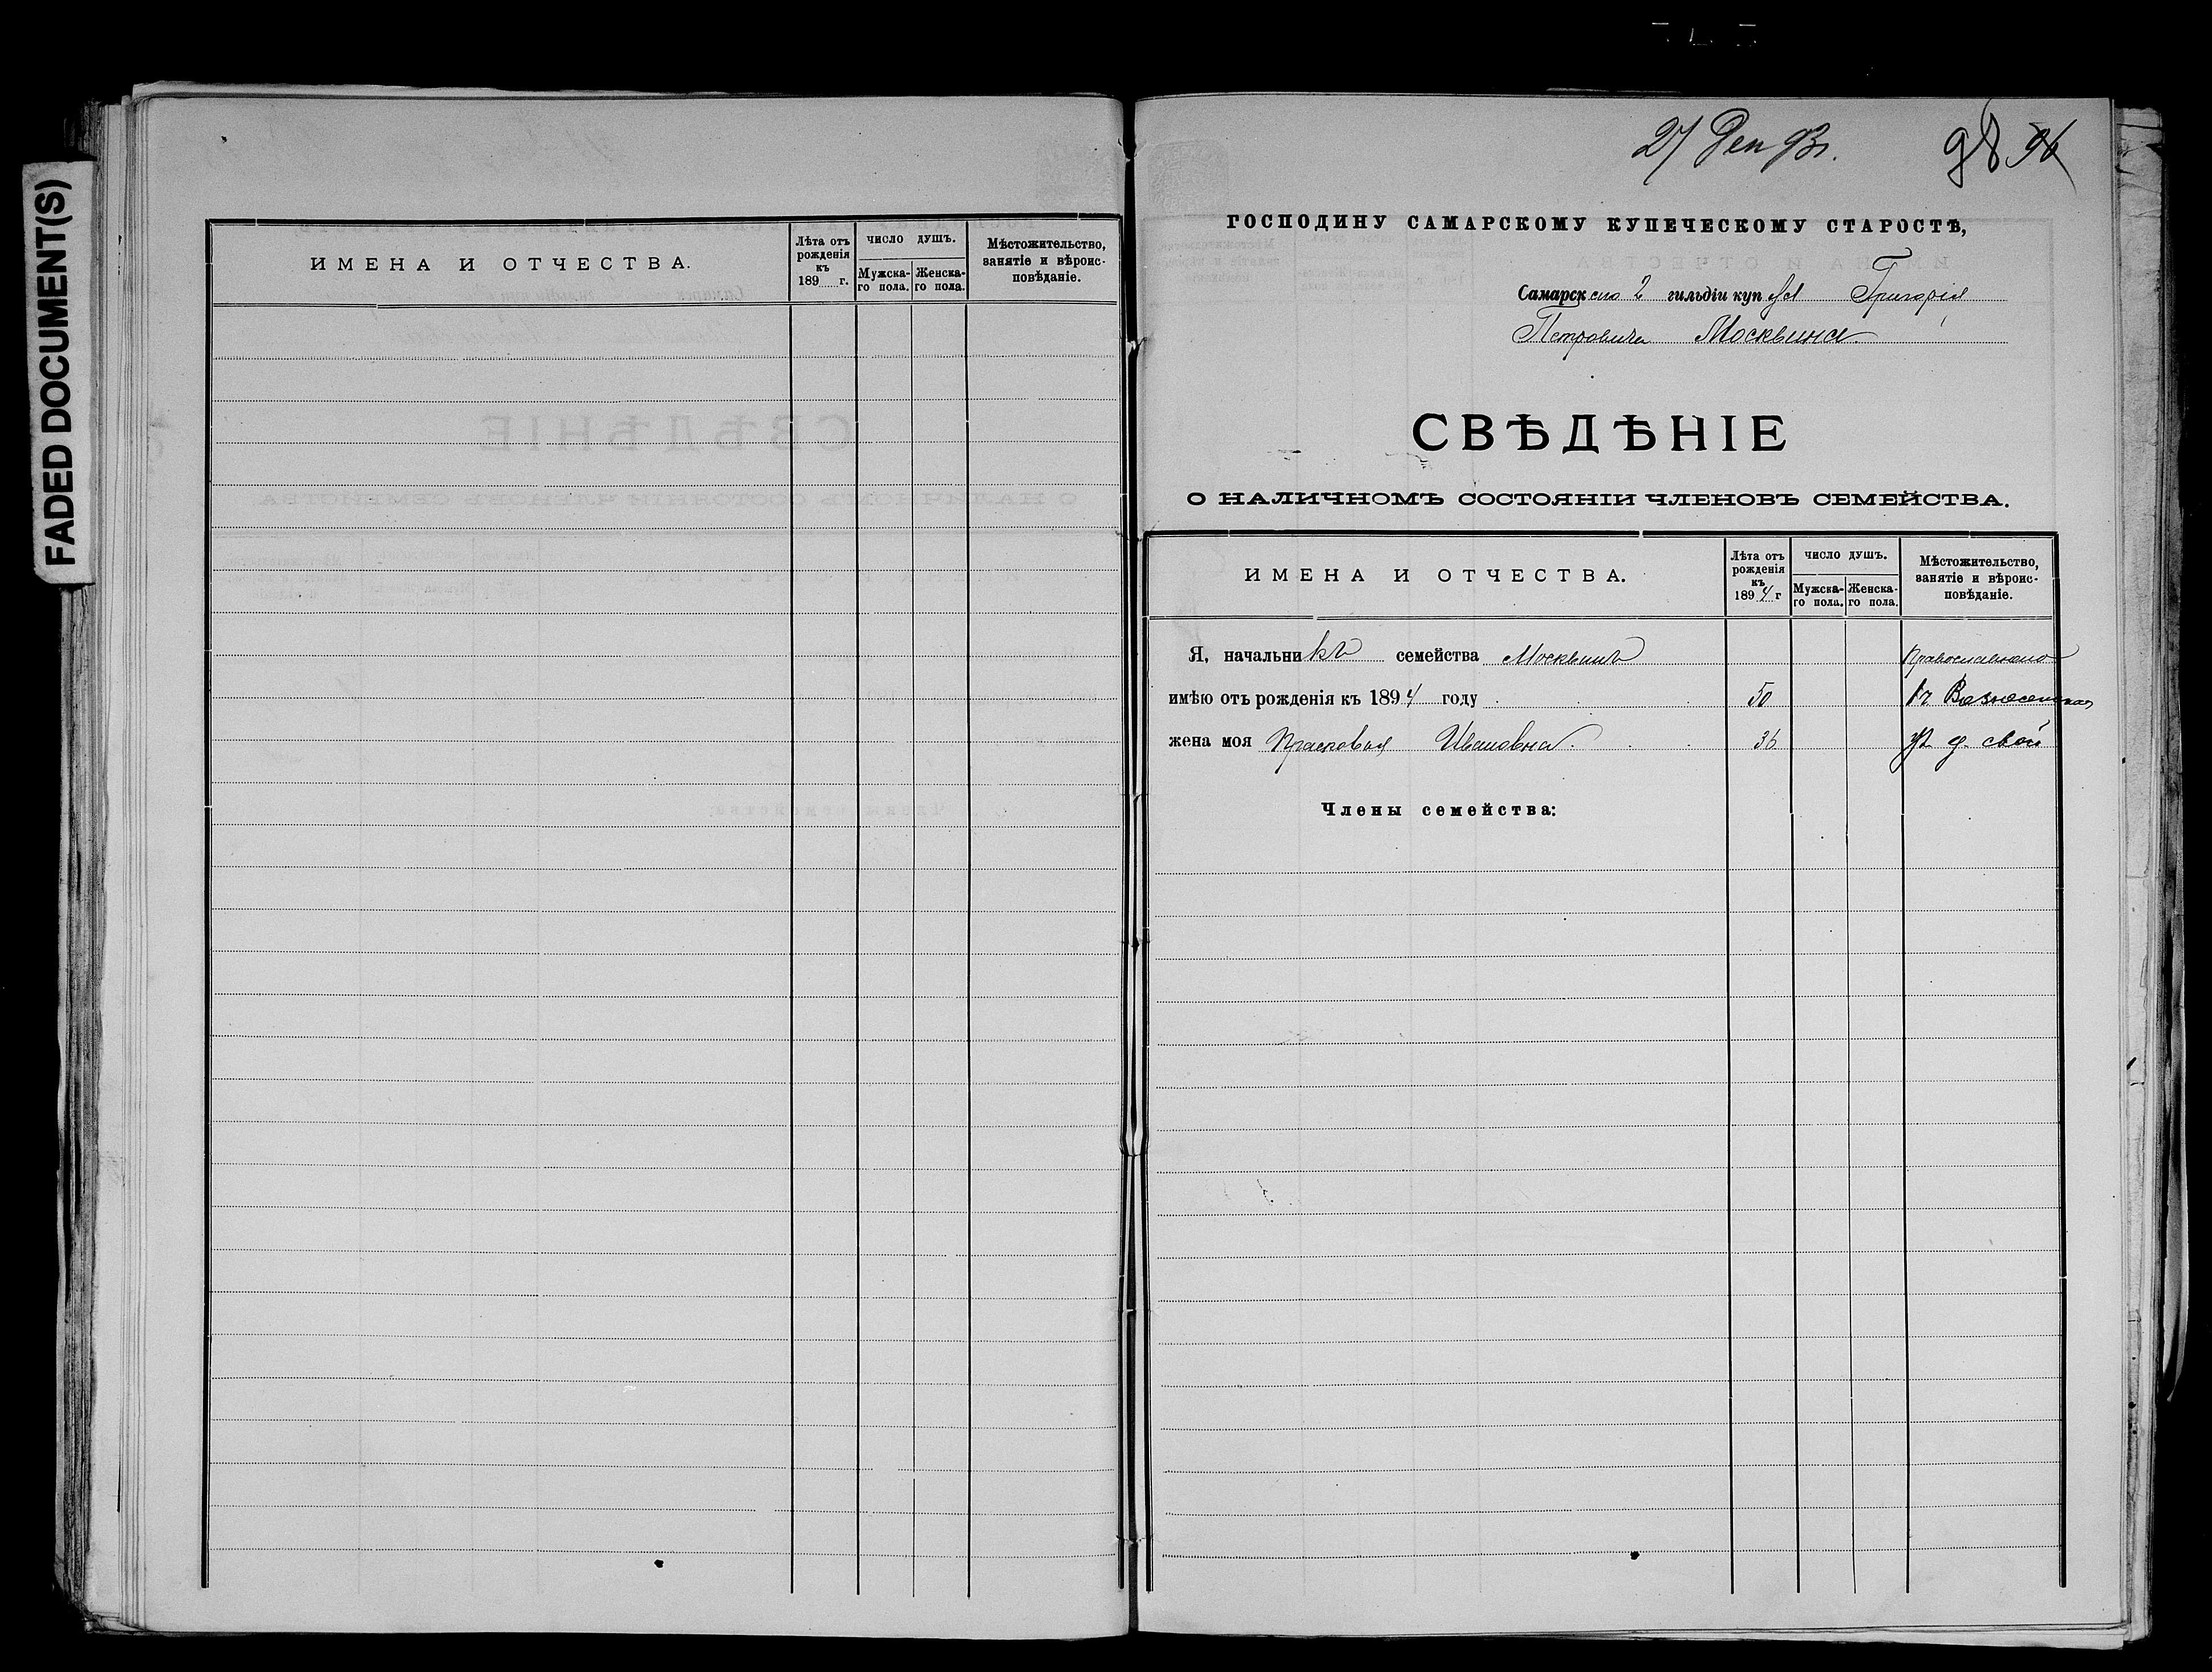 FADED DOCUMENT(S)
ИМЕНА И ОТЧЕСТВА.
Лѣта отъ
рожденія
къ
189 г.
ЧИСЛО ДУШЪ.
Мужска-
го пола.
Женска-
го пола.
Мѣстожительство,
занятіе и вѣроис-
повѣданіе.
27 Дек 93 г.
98 96
ГОСПОДИНУ САМАРСКОМУ КУПЕЧЕСКОМУ СТАРОСТѢ,
Самарскаго 2 гильдіи купца Григорія
Петровича Москвина
СВѢДѢНІЕ
О НАЛИЧНОМЪ СОСТОЯНІИ ЧЛЕНОВЪ СЕМЕЙСТВА.
ИМЕНА И ОТЧЕСТВА.
Лѣта отъ
рожденія
къ
1894 г
ЧИСЛО ДУШЪ.
Мужска-
го пола.
Женска-
го пола.
Мѣстожительство,
занятіе и вѣроис-
повѣданіе.
Я, начальникъ семейства Москвинъ Православнаго
имѣю отъ рожденія къ 1894 году 50 Вознесенская
жена моя Прасковья Ивановна 36 ул. д. свой
Члены семейства: